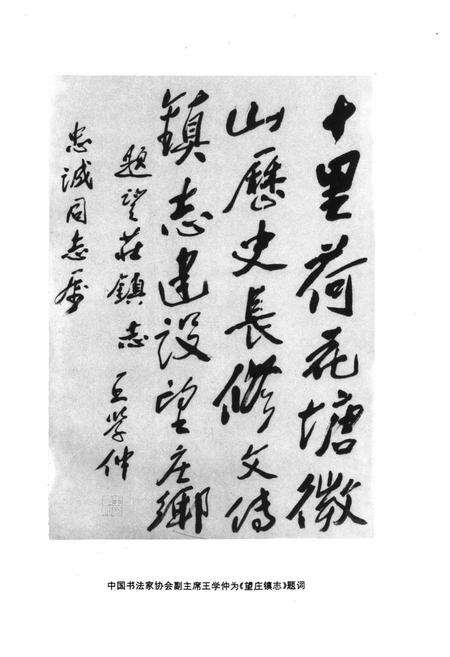 十里荷花塘微
山歷史長修文傳
鎮志建設望庄鄉
題望莊鎮志 王学仲
忠诚同志属
中国书法家协会副主席王学仲为《望庄镇志》题词